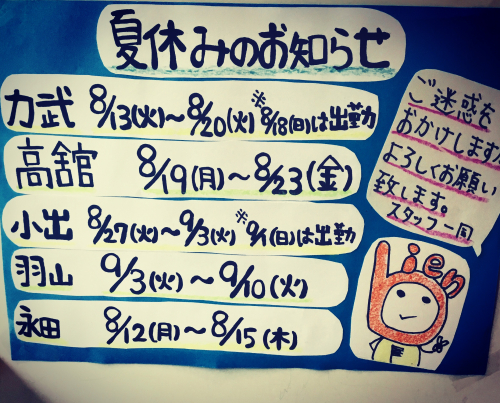 夏休みのお知らせ
力武 8/13(火)～8/20(火) ※8/18(日)は出勤
高舘 8/19(月)～8/23(金)
小出 8/27(火)～9/3(火) ※9/1(日)は出勤
羽山 9/3(火)～9/10(火)
永田 8/12(月)～8/15(木)
ご迷惑を
おかけします
よろしくお願い
致します。
スタッフ一同
bien